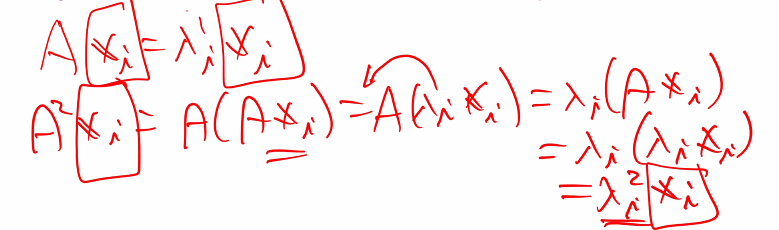 A x_i = λ_i x_i
A² x_i = A(A x_i) = A(λ_i x_i) = λ_i(A x_i)
= λ_i(λ_i x_i)
= λ_i² x_i